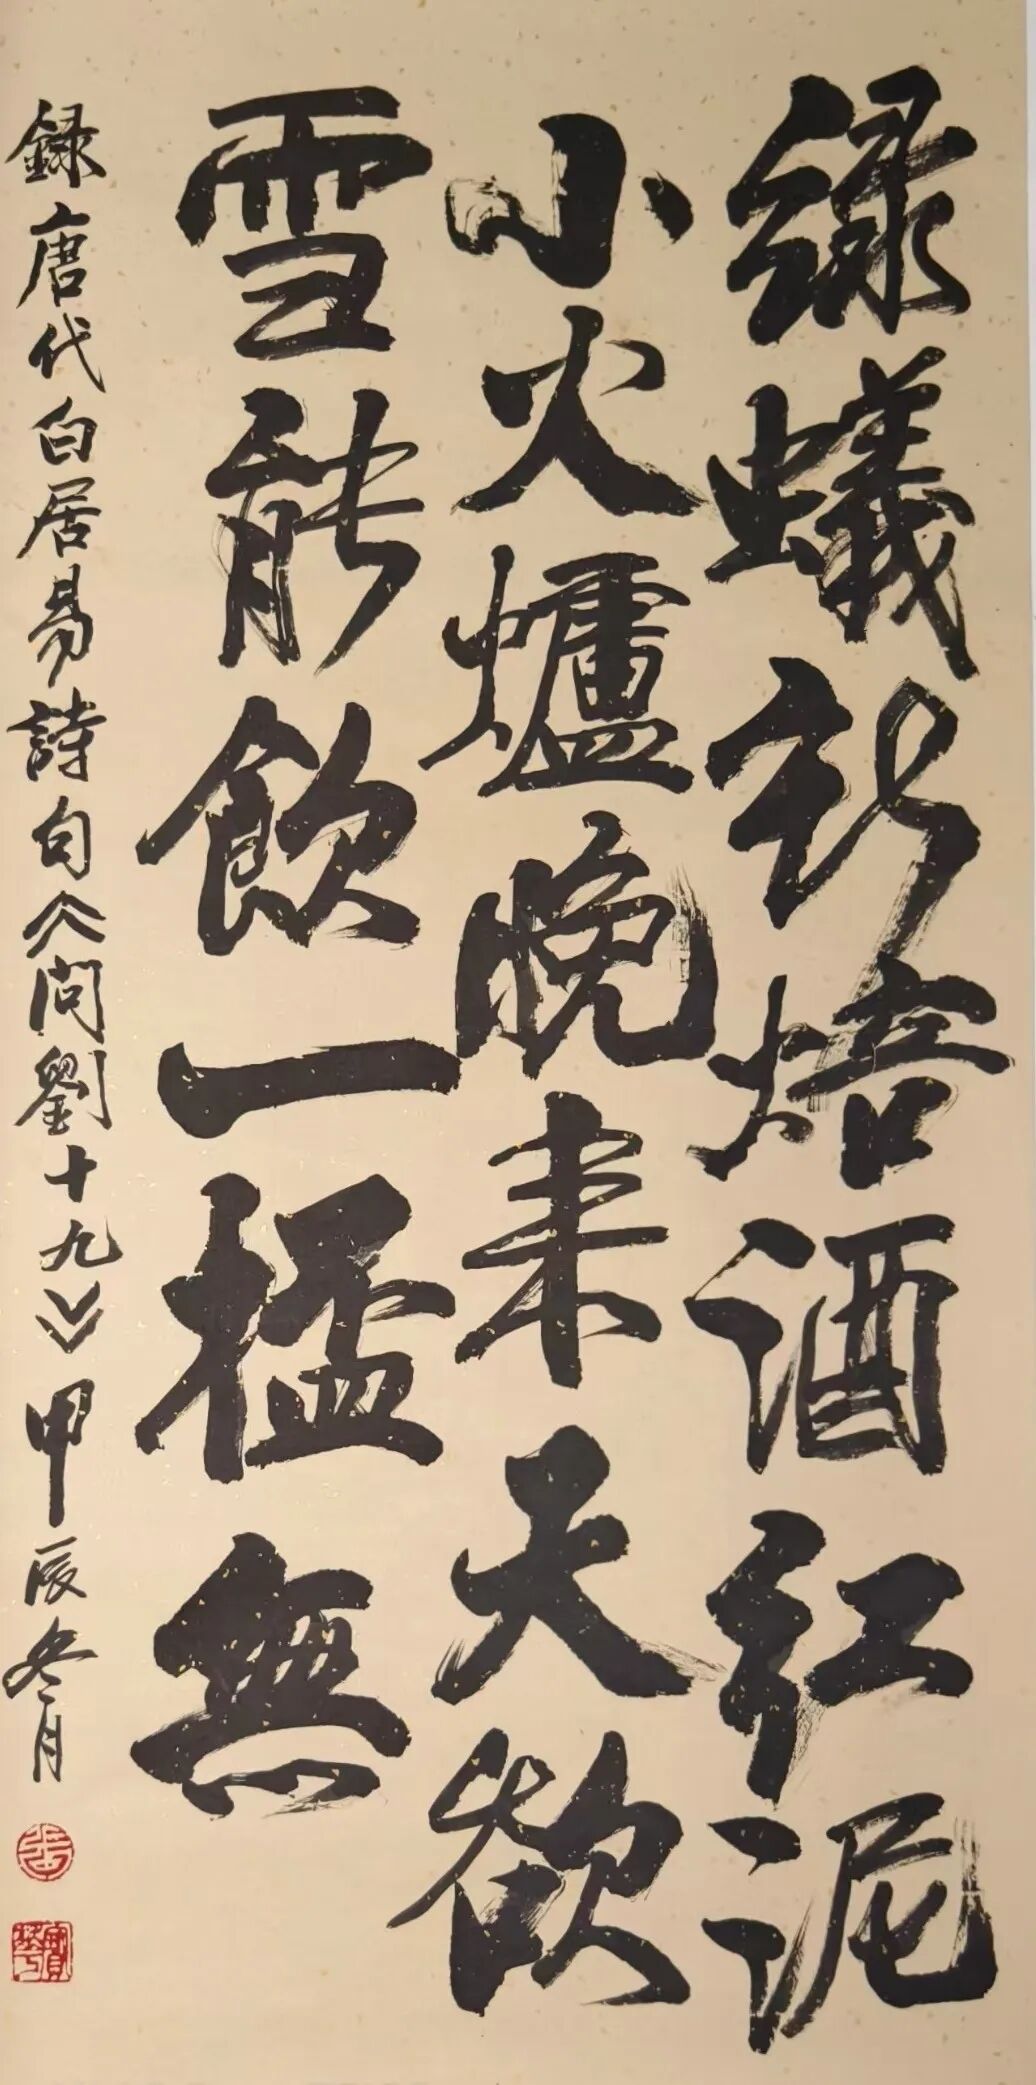 緑蟻新焙酒紅泥
小火爐晚来天欲
雪能飲一盃無
録唐代白居易詩句《問劉十九》甲辰冬月